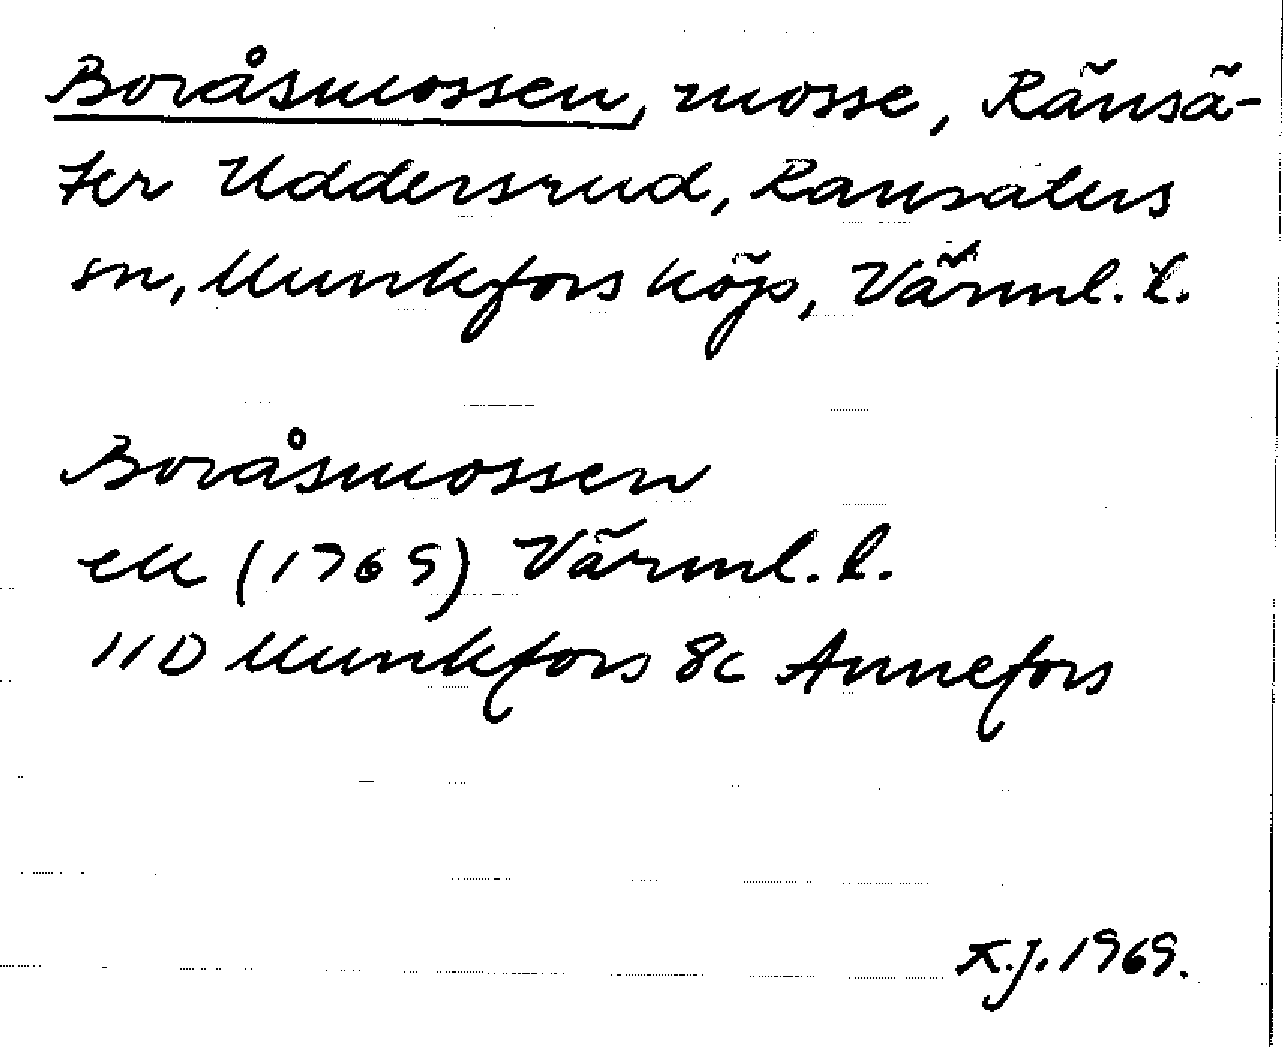 Boråsmossen, mosse, Ränsä-
ter Uddersrud, Ransäters
sn, Munkfors köp, Värml. l.
Boråsmossen
ek (1969) Värml. l.
11D Munkfors 8c Annefors
K.J. 1969.